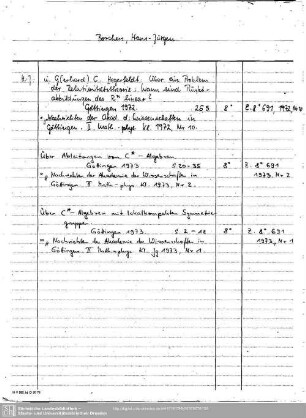 Borchers, Hans-Jürgen
u. G(erhard) C. Hegerfeldt. Über ein Problem
der Relativitätstheorie: wann sind Punkt-
abbildungen des Rⁿ linear?
Göttingen 1972. 25 S. 8° Z. 8° 691, 1972, Nr 10
= Nachrichten der Akad. d. Wissenschaften in
Göttingen. II. Math.-phys. Kl. 1972, Nr 10.
Über Ableitungen von C* - Algebren
Göttingen 1973. S. 20-35 8° Z. 8° 691
= Nachrichten der Akademie der Wissenschaften in 1973, Nr 2
Göttingen II Math.-phys. Kl. 1973, Nr 2.
Über C* - Algebren mit lokalkompakter Symmetrie-
gruppe
Göttingen 1973 S. 2-18 8° Z. 8° 691
= Nachrichten der Akademie der Wissenschaften in 1973, Nr 1
Göttingen II Math.-phys. Kl. Jg 1973, Nr 1.